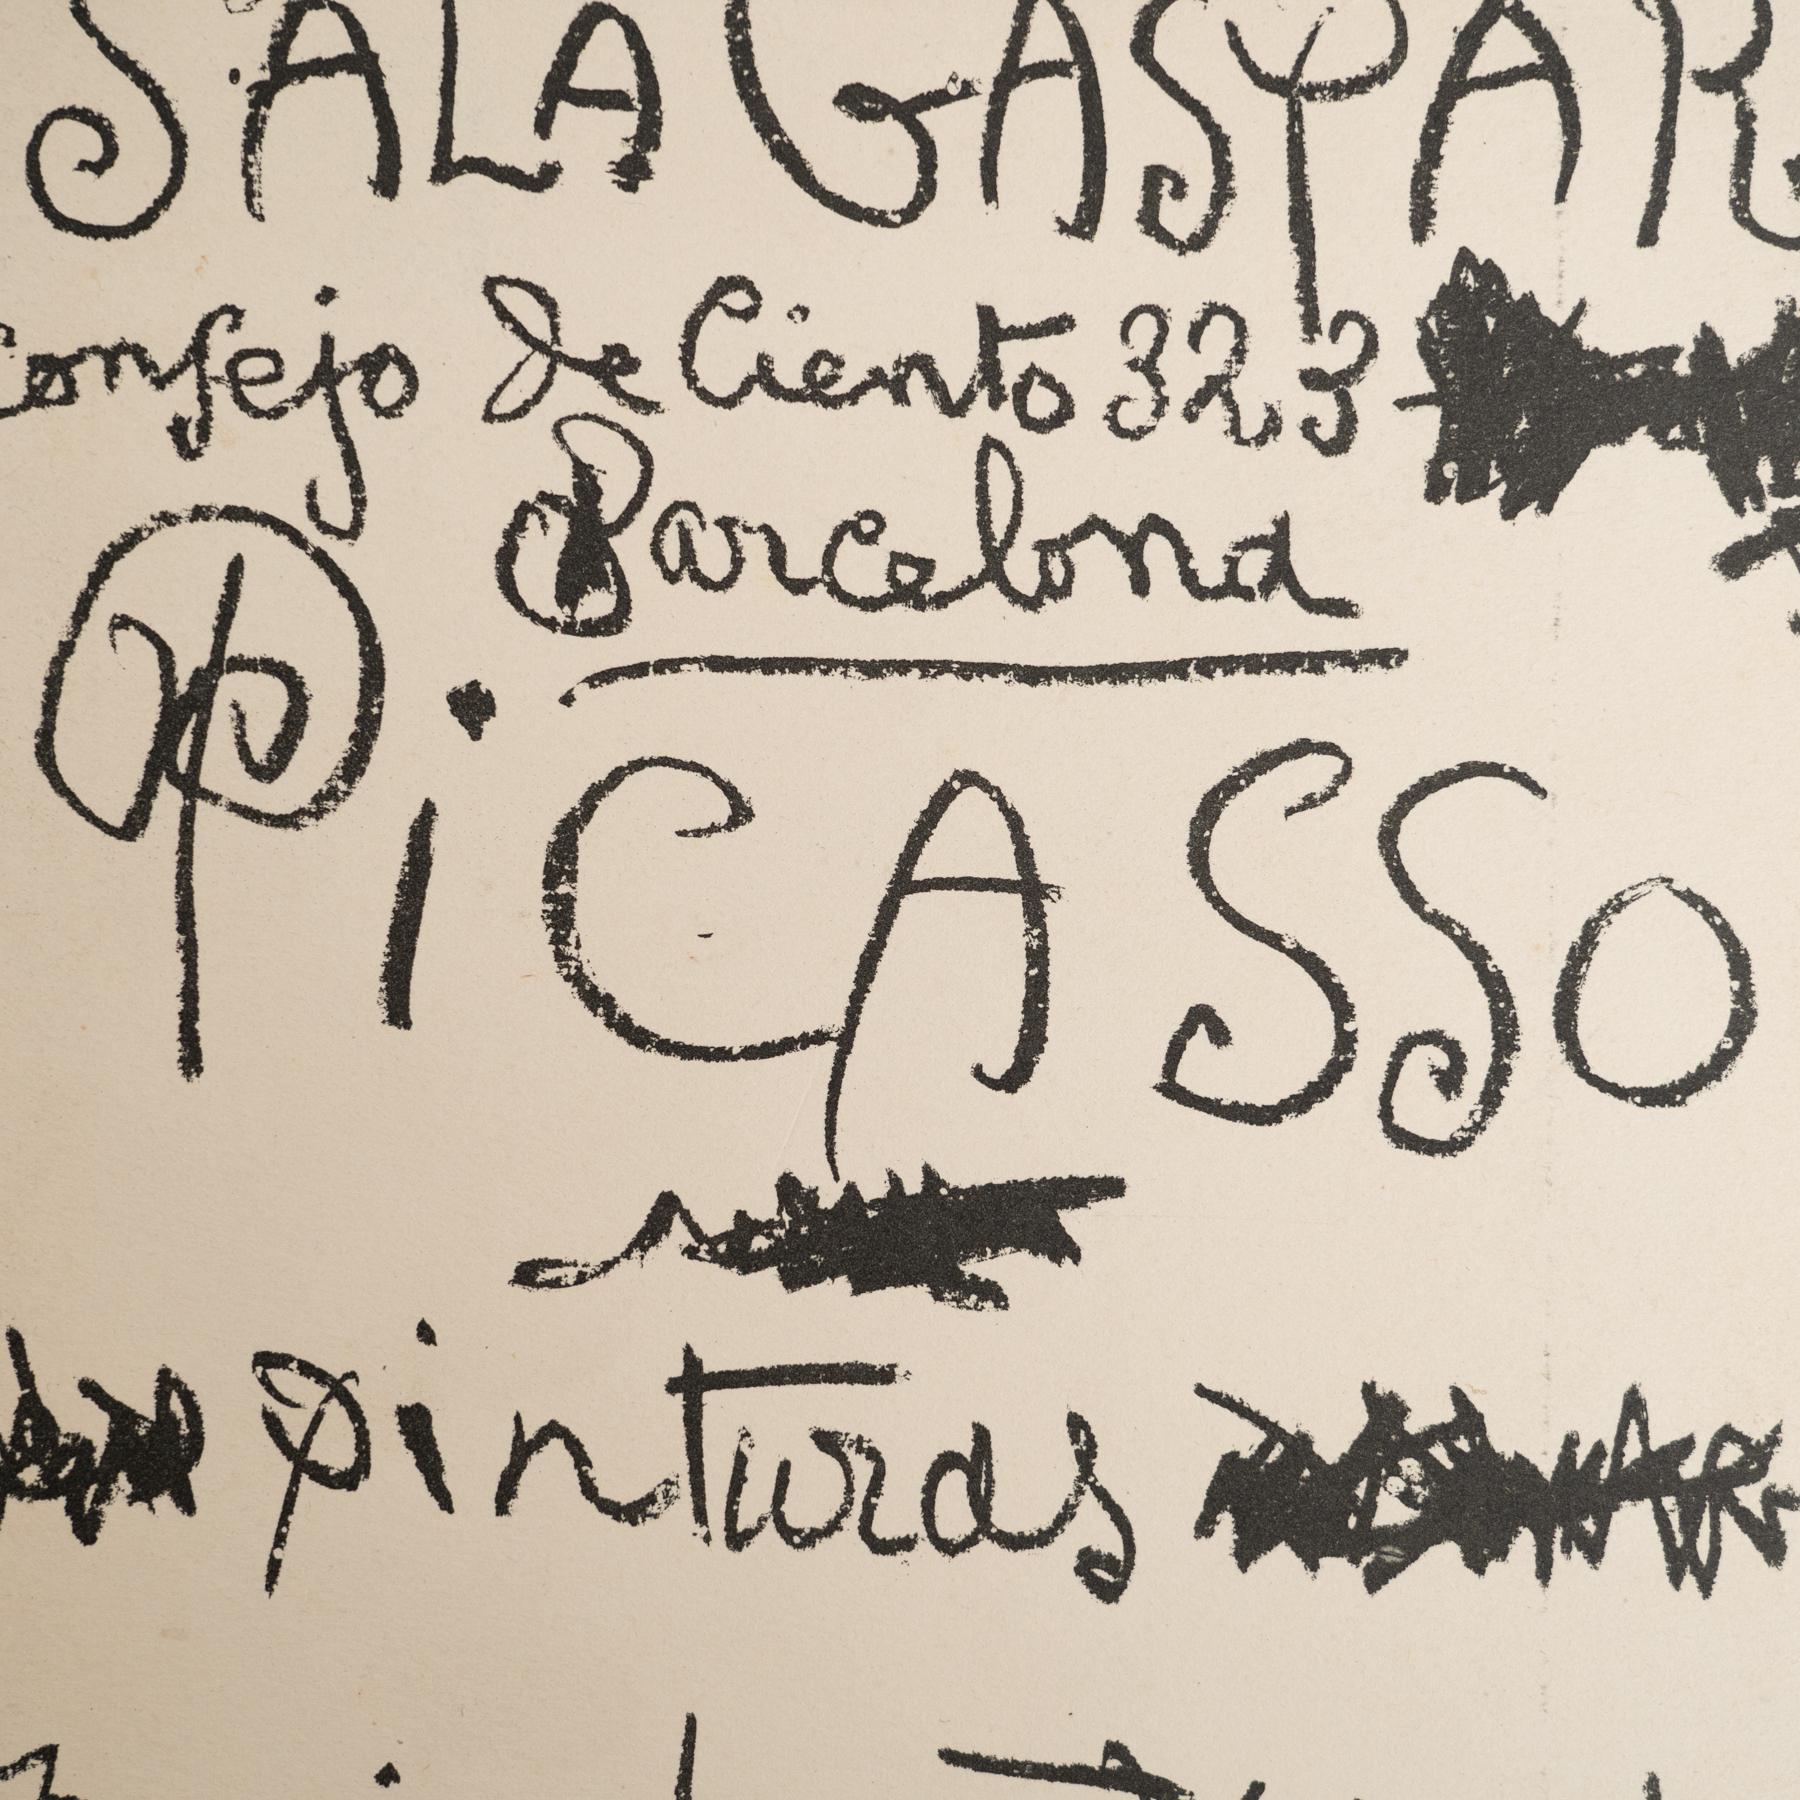 SALA GASPAR
Consejo de Ciento 323
Barcelona
PiCASSO
pinturas